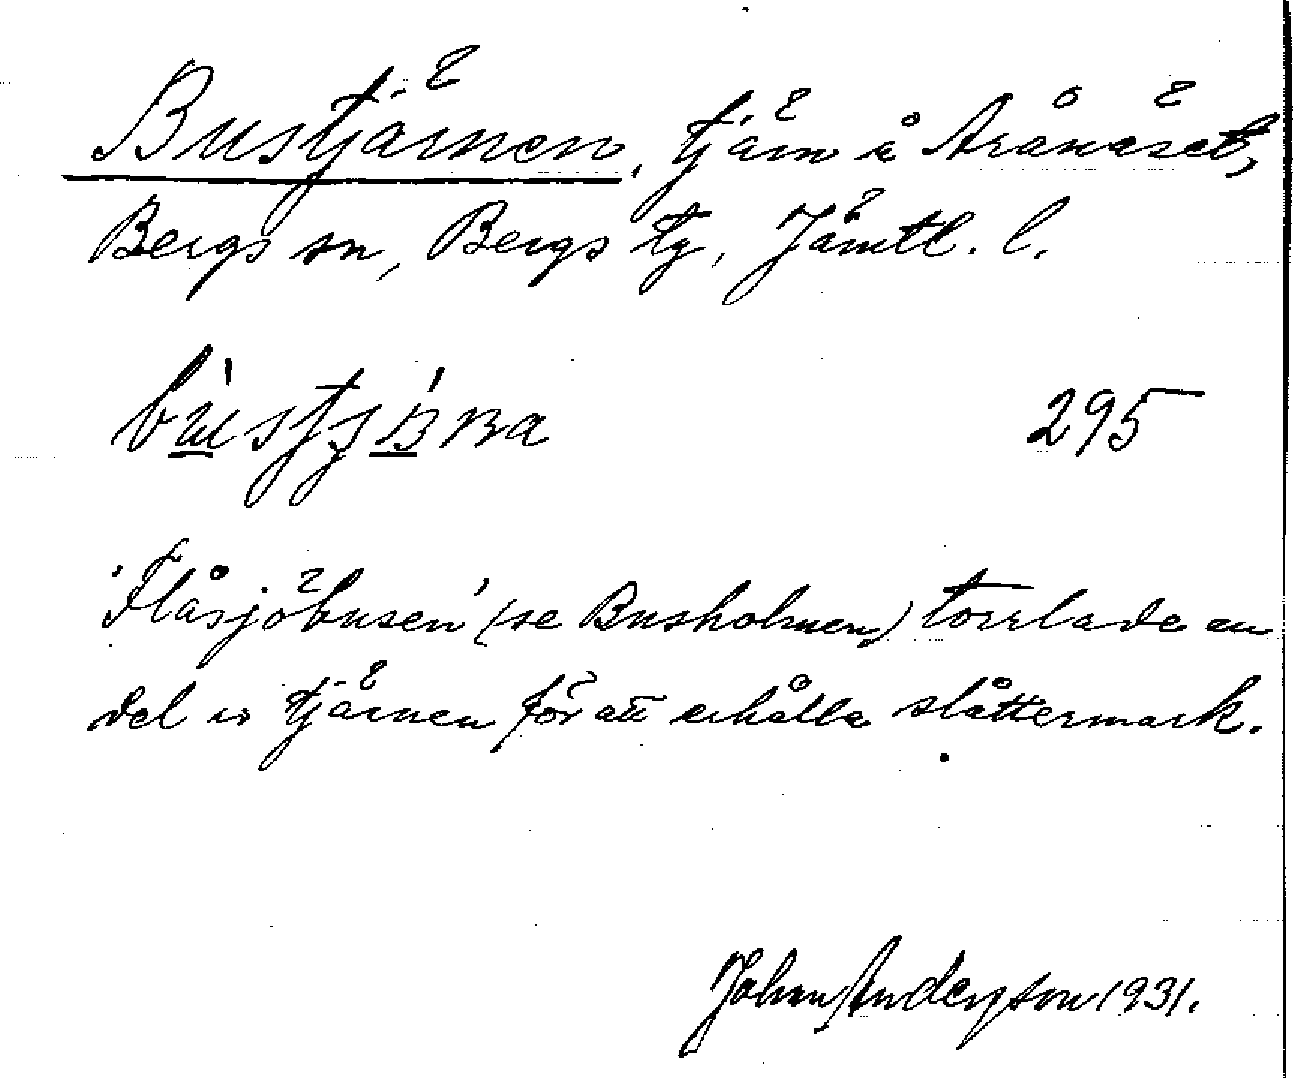 Bustjärnen, tjärn i Arånäset,
Bergs sn, Bergs tg, Jämtl. l.
295
'Flåsjöbusen' (se Busholmen) torrlade en
del av tjärnen för att erhålla slåttermark.
Johan Anderzson 1931.